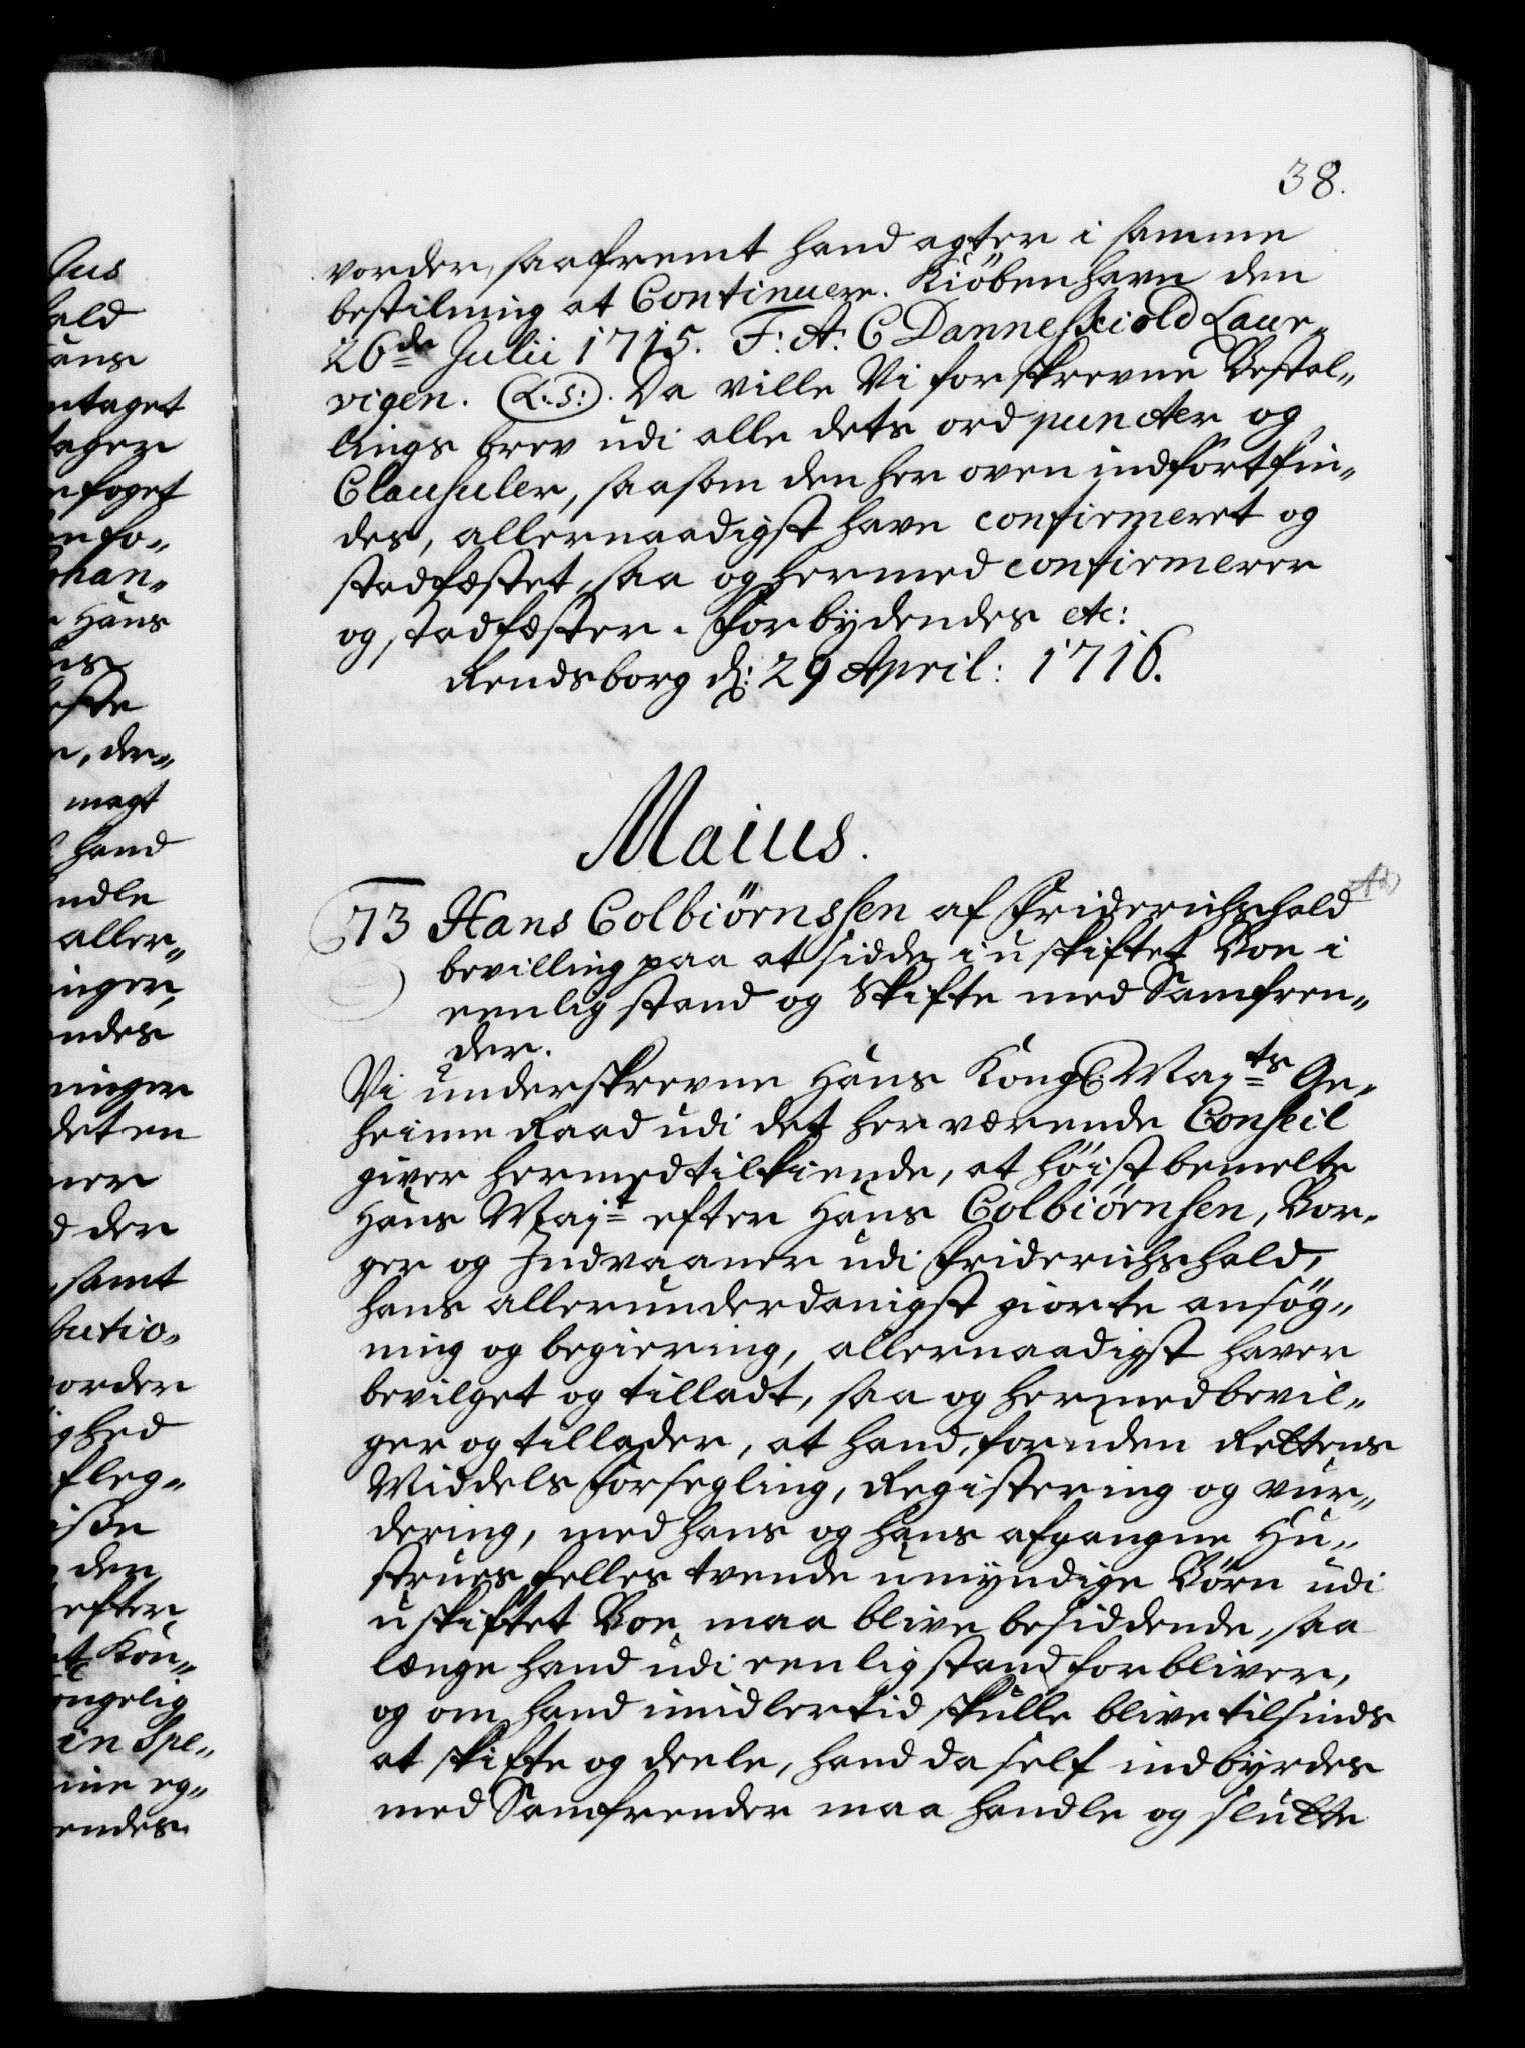 38.
vorder, saafremt hand agter i samme
bestilning at Continuere. Kiöbenhavn den
26de Julii 1715. F: A: C Danneskiold Laur„
vigen. (L.S:). Da ville Vi forskrevne Bestal„
lings brev udi alle dets ord puncter og
Clausuler, saasom den her oven indfört fin„
des, allernaadigst have confirmeret og
stadfæstet, saa og hermed confirmerer
og stadfæster. Forbÿdendes etc:
Rendsborg d: 29 April: 1716.
Maius.
73 Hans Colbiörnssen af Friderichshald
bevilling paa at sidde i uskiftet Boe i
eenlig stand og Skifte med Samfren„
der.
Vi underskrevne Hans Kongl: Majts Ge„
heime Raad udi det herværende Conseil
giver hermed tilkiende, at höist bemelte
Hans Majt efter Hans Colbiörnsen, Bor„
ger og Indvaaner udi Friderichshald,
hans allerunderdanigst giorte ansög„
ning og begiering, allernaadigst haver
bevilget og tilladt, saa og hermed bevil„
ger og tillader, at hand, foruden Rettens
Middels Forsegling, Registering og vur„
dering, med hans og hans afgangne Hu„
strues felles tvende umÿndige Börn udi
uskiftet Boe maa blive besiddende, saa
længe hand udi eenlig stand forbliver,
og om hand imidlertid skulle blive tilsinds
at skifte og deele, hand da self indbÿrdes
med Samfrender maa handle og slutte
Jus
hald
hans
ntaget
tager
foget
fo„
than„
Hans
este
, der„
magt
hand
ndle
aller„
inger,
endes
ninger
det en
ner
d der
, samt
butio„
vorder
ghed
fleg„
den
efter
Kon„
ongelig
in Spe„
eg„
endes